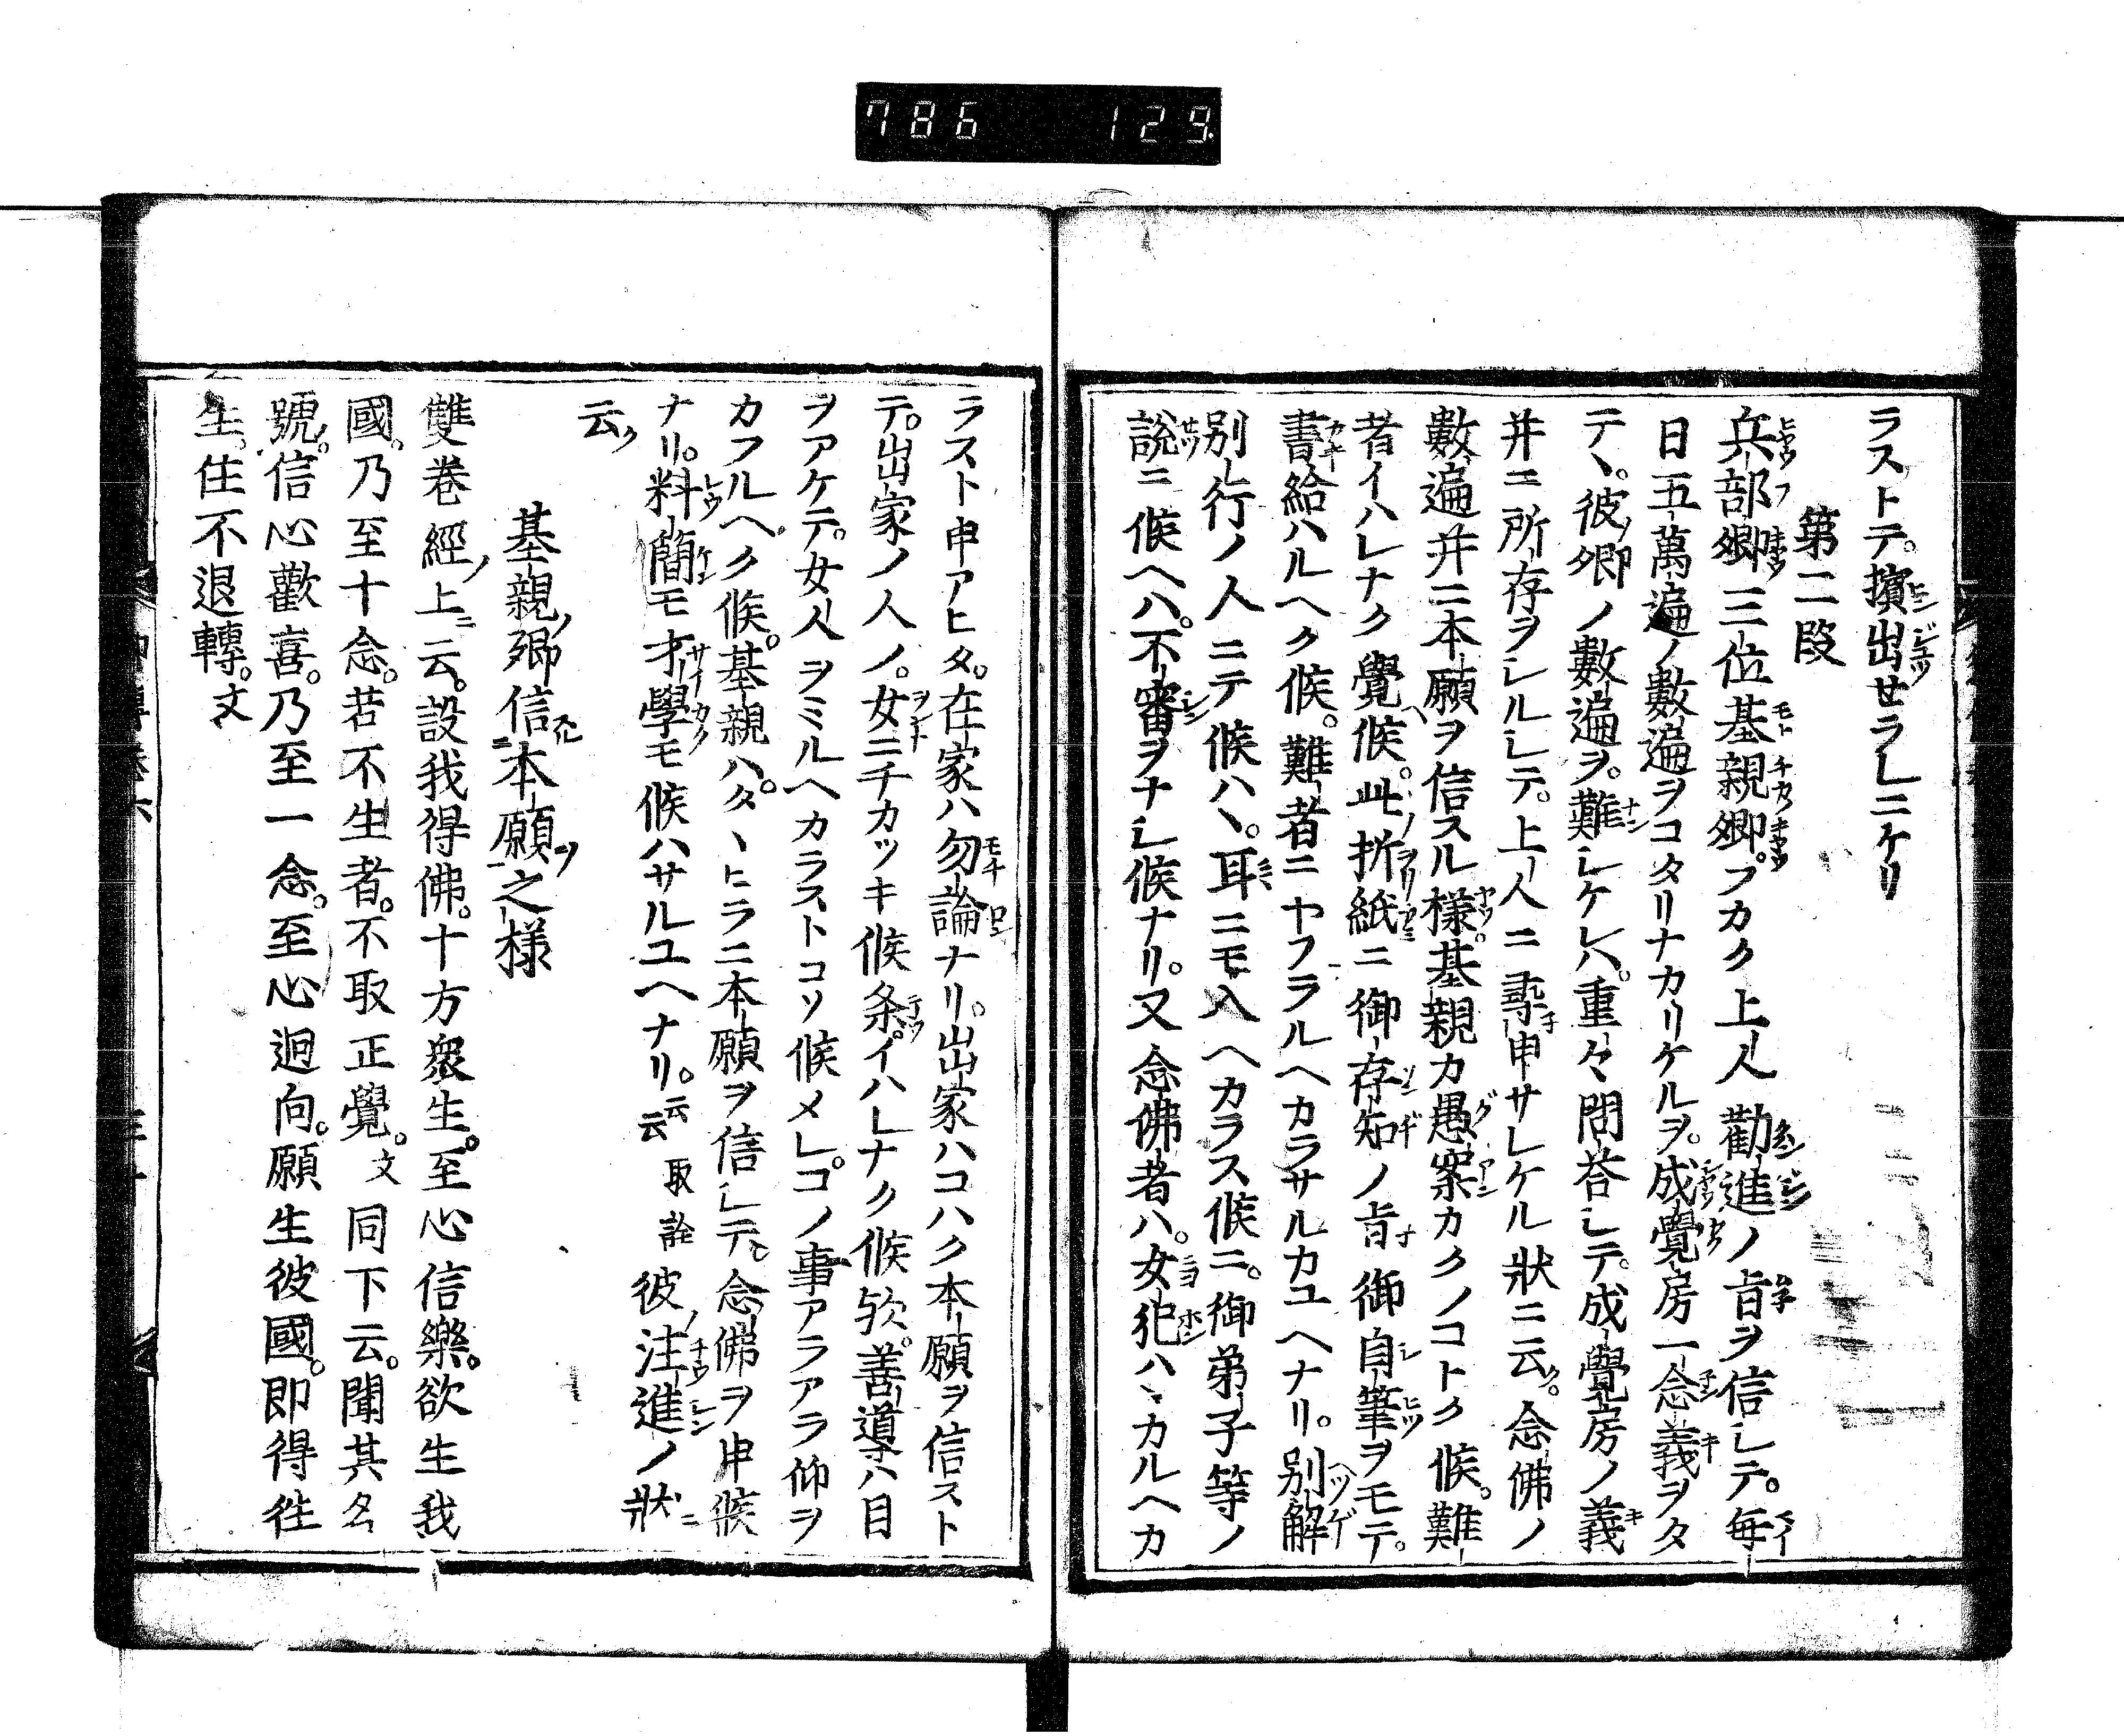 786 129
ラストテ。擯出セラレニケリ
第二段
兵部卿三位基親卿。フカク上人勸進ノ旨ヲ信シテ。毎
日五萬遍ノ數遍ヲコタリナカリケルヲ。成覺房一念義ヲタ
テヽ。彼卿ノ數遍ヲ。難シケレハ。重々問荅シテ。成覺房ノ義
并ニ所存ヲシルシテ。上人ニ尋申サレケル狀ニ云ク。念佛ノ
數遍并ニ本願ヲ信スル樣。基親カ愚案カクノコトク候。難
者イハレナク覺ヘ候。此ノ折紙ニ御存知ノ旨御自筆ヲモテ。
書給ハルヘク候。難者ニヤフラルヘカラサルカユヘナリ。別解
別行ノ人ニテ候ハヽ。耳ニモ入ヘカラス候ニ。御弟子等ノ
說ニ候ヘハ。不審ヲナシ候ナリ。又念佛者ハ。女犯ハヽカルヘカ
ラスト申アヒタ。在家ハ勿論ナリ。出家ハコハク本願ヲ信スト
テ。出家ノ人ノ。女ニチカツキ候条。イハレナク候欤。善導ハ目
ヲアケテ。女人ヲミルヘカラストコソ候メレ。コノ事アラアラ仰ヲ
カフルヘク候。基親ハ。タヽヒラニ本願ヲ信シテ。念佛ヲ申候
ナリ。料簡モ才學モ候ハサルユヘナリ。云云 取詮 彼ノ注進ノ狀ニ
云ク
基親ノ卿信スル本願ヲ之樣
雙卷經ノ上ニ云。設我得佛。十方衆生。至心信樂。欲生我
國。乃至十念。若不生者。不取正覺。文 同下云。聞其名
號。信心歡喜。乃至一念。至心迴向。願生彼國。即得徃
生。住不退轉。文